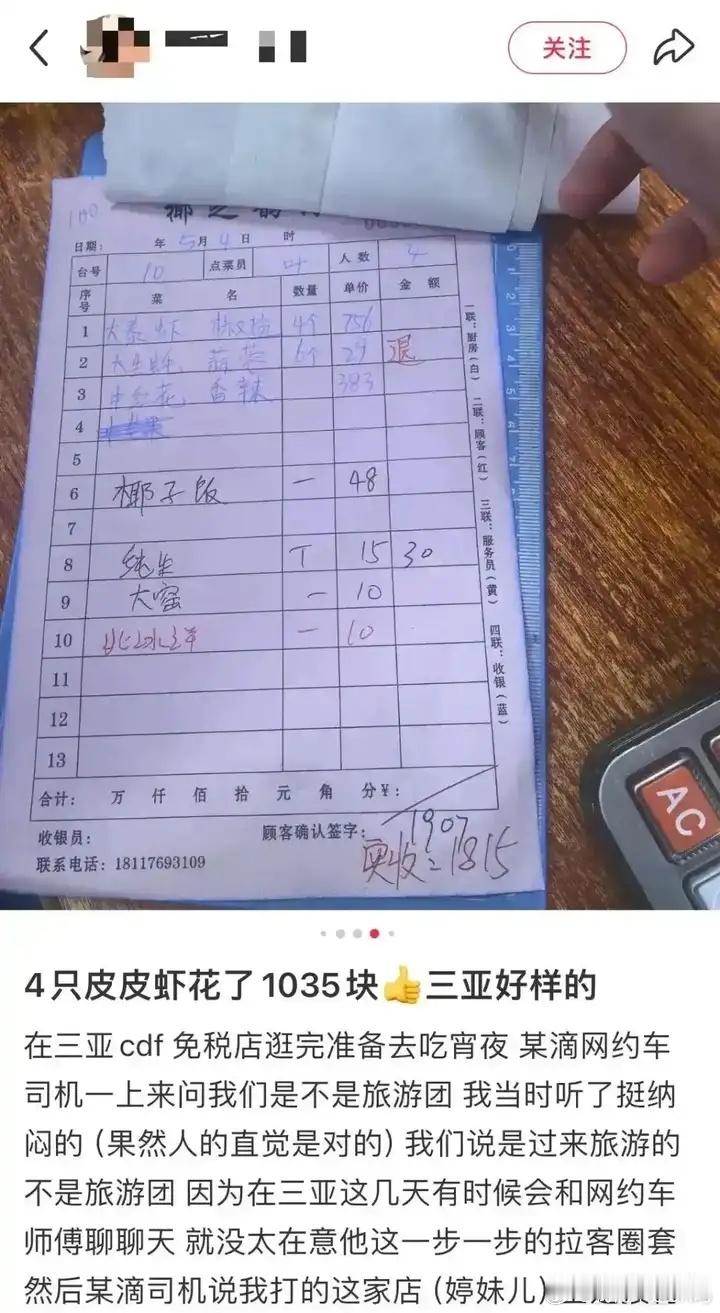 关注
日期： 年 5月 4日 时
台号 10 点菜员 叶 人数 4
序号 菜 名 数量 单价 金 额
1 大泰虾 椒盐 4个 756
2 大生蚝 蒜蓉 6个 29 退
3 香辣 383
4
5
6 椰子饭 一 48
7
8 纯生 T 15 30
9 大窑 一 10
10 一 10
11
12
13
合计： 万 仟 佰 拾 元 角 分¥：
1907
收银员： 顾客确认签字：
实收：1815
联系电话：18117693109
一联：厨房（白）
二联：顾客（红）
三联：服务员（黄）
四联：收银（蓝）
AC
4只皮皮虾花了1035块👍三亚好样的
在三亚cdf 免税店逛完准备去吃宵夜 某滴网约车
司机一上来问我们是不是旅游团 我当时听了挺纳
闷的（果然人的直觉是对的）我们说是过来旅游的
不是旅游团 因为在三亚这几天有时候会和网约车
师傅聊聊天 就没太在意他这一步一步的拉客圈套
然后某滴司机说我打的这家店（婷妹儿）